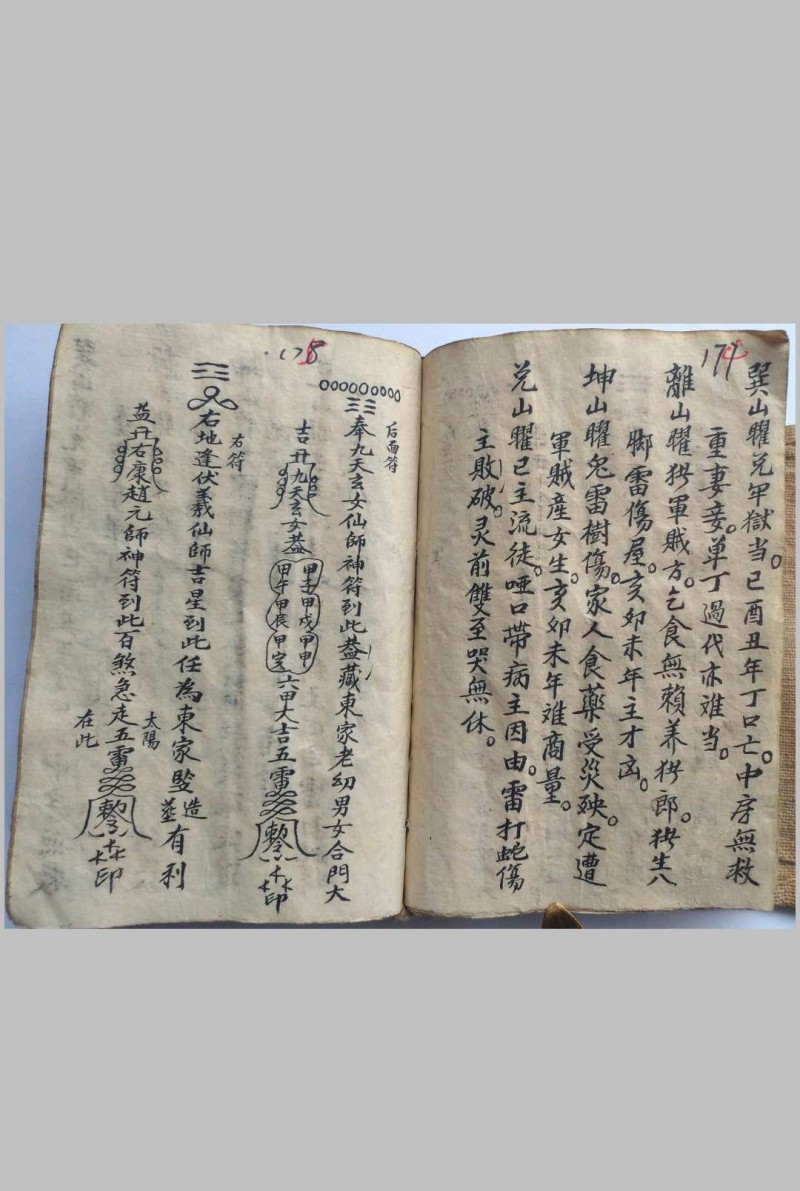 174
巽山曜兑牢獄当。巳酉丑年丁口亡。中房無救
重妻妾。单丁過代亦难当。
離山曜猪軍賊方。乞食無賴养猪郎。猪生八
脚雷傷屋。亥卯未年主才凶。
坤山曜兔雷樹傷。家人食藥受災殃。定遭
軍賊產女生。亥卯未年难商量。
兑山曜巳主流徒。哑口帶病主因由。雷打蛇傷
主敗破。灵前雙至哭無休。
175
后面符
奉九天玄女仙師神符到此蓋藏東家老幼男女合門大
吉 九天玄女蓋 甲子甲戌甲申甲午甲辰甲寅 六甲大吉五雷 印
右符
右地逢伏羲仙師吉星到此任為東家竪造葬有利
蓋 右康趙元帥神符到此百煞急走五雷 印
太陽在此